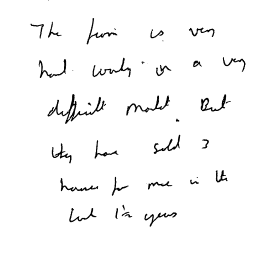 The firm is very
hard working in a very
difficult market. But
they have sold 3
houses for me in the
last 1½ years